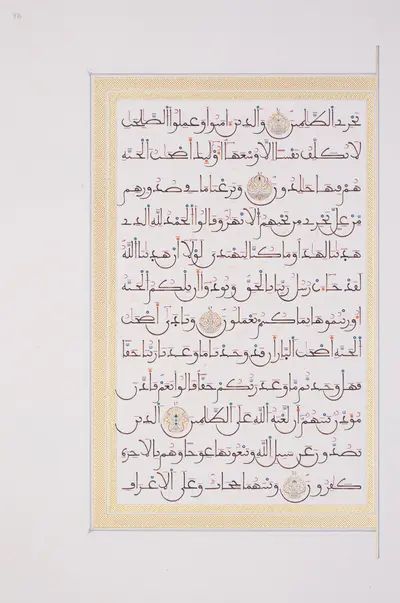 نجزي الظلمين والذين امنوا وعملوا الصلحت
لا نكلف نفسا الا وسعها اوليك اصحب الجنة
هم فيها خلدون ونزعنا ما في صدورهم
من غل تجري من تحتهم الانهر وقالوا الحمد لله الذي
هدينا لهذا وما كنا لنهتدي لولا ان هدينا الله
لقد جات رسل ربنا بالحق ونودوا ان تلكم الجنة
اورثتموها بما كنتم تعملون ونادى اصحب
الجنة اصحب النار ان قد وجدنا ما وعدنا ربنا حقا
فهل وجدتم ما وعد ربكم حقا قالوا نعم فاذن
موذن بينهم ان لعنة الله على الظلمين الذين
يصدون عن سبيل الله ويبغونها عوجا وهم بالاخرة
كفرون وبينهما حجاب وعلى الاعراف